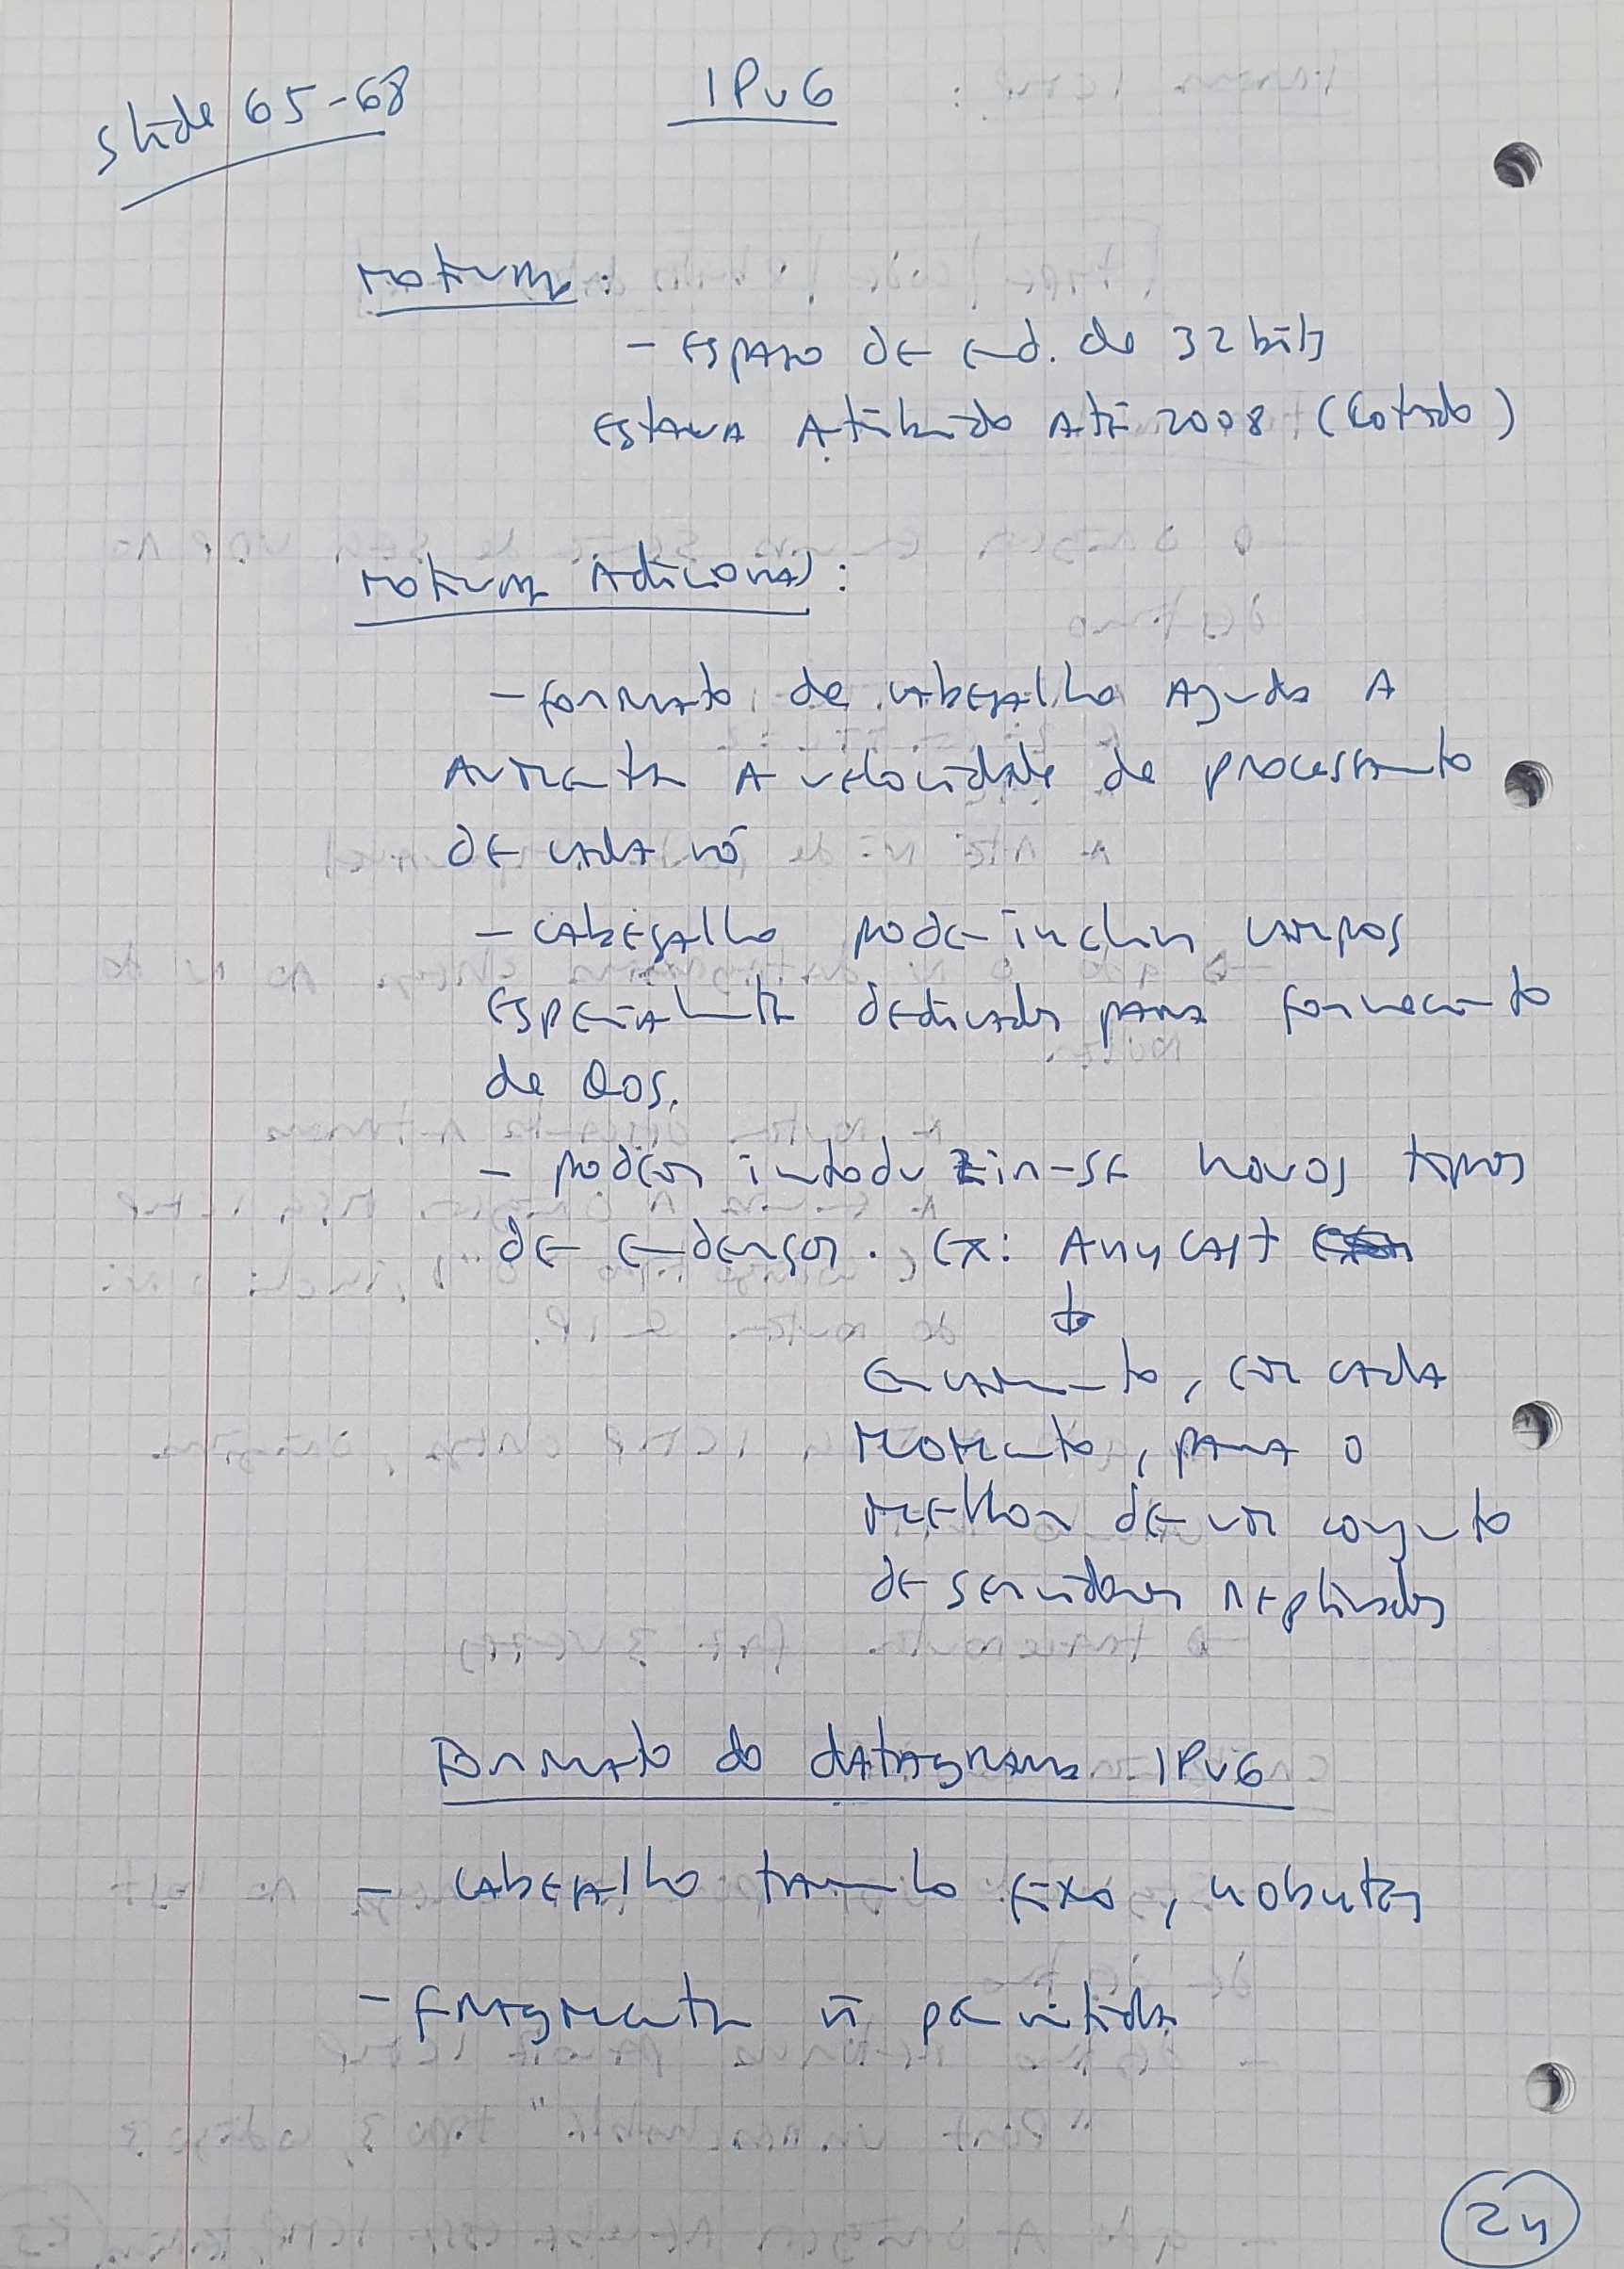 slide 65-68
IPv6
motivação:
- espaço de end. de 32 bits
estava atribuido até 2008 (Esgotado)
motivação adicional:
- formato de cabeçalho ajuda a
aumentar a velocidade de processamento
de cada nó
- cabeçalho pode incluir campos
especialmente dedicados para fornecimento
de QoS.
- podem introduzir-se novos tipos
de endereços. Ex: Anycast
↓
Encaminhamento, em cada
momento, para o
melhor de um conjunto
de servidores replicados
Formato do datagrama IPv6
- cabeçalho tamanho fixo, 40bytes
- fragmentação ñ permitida
24